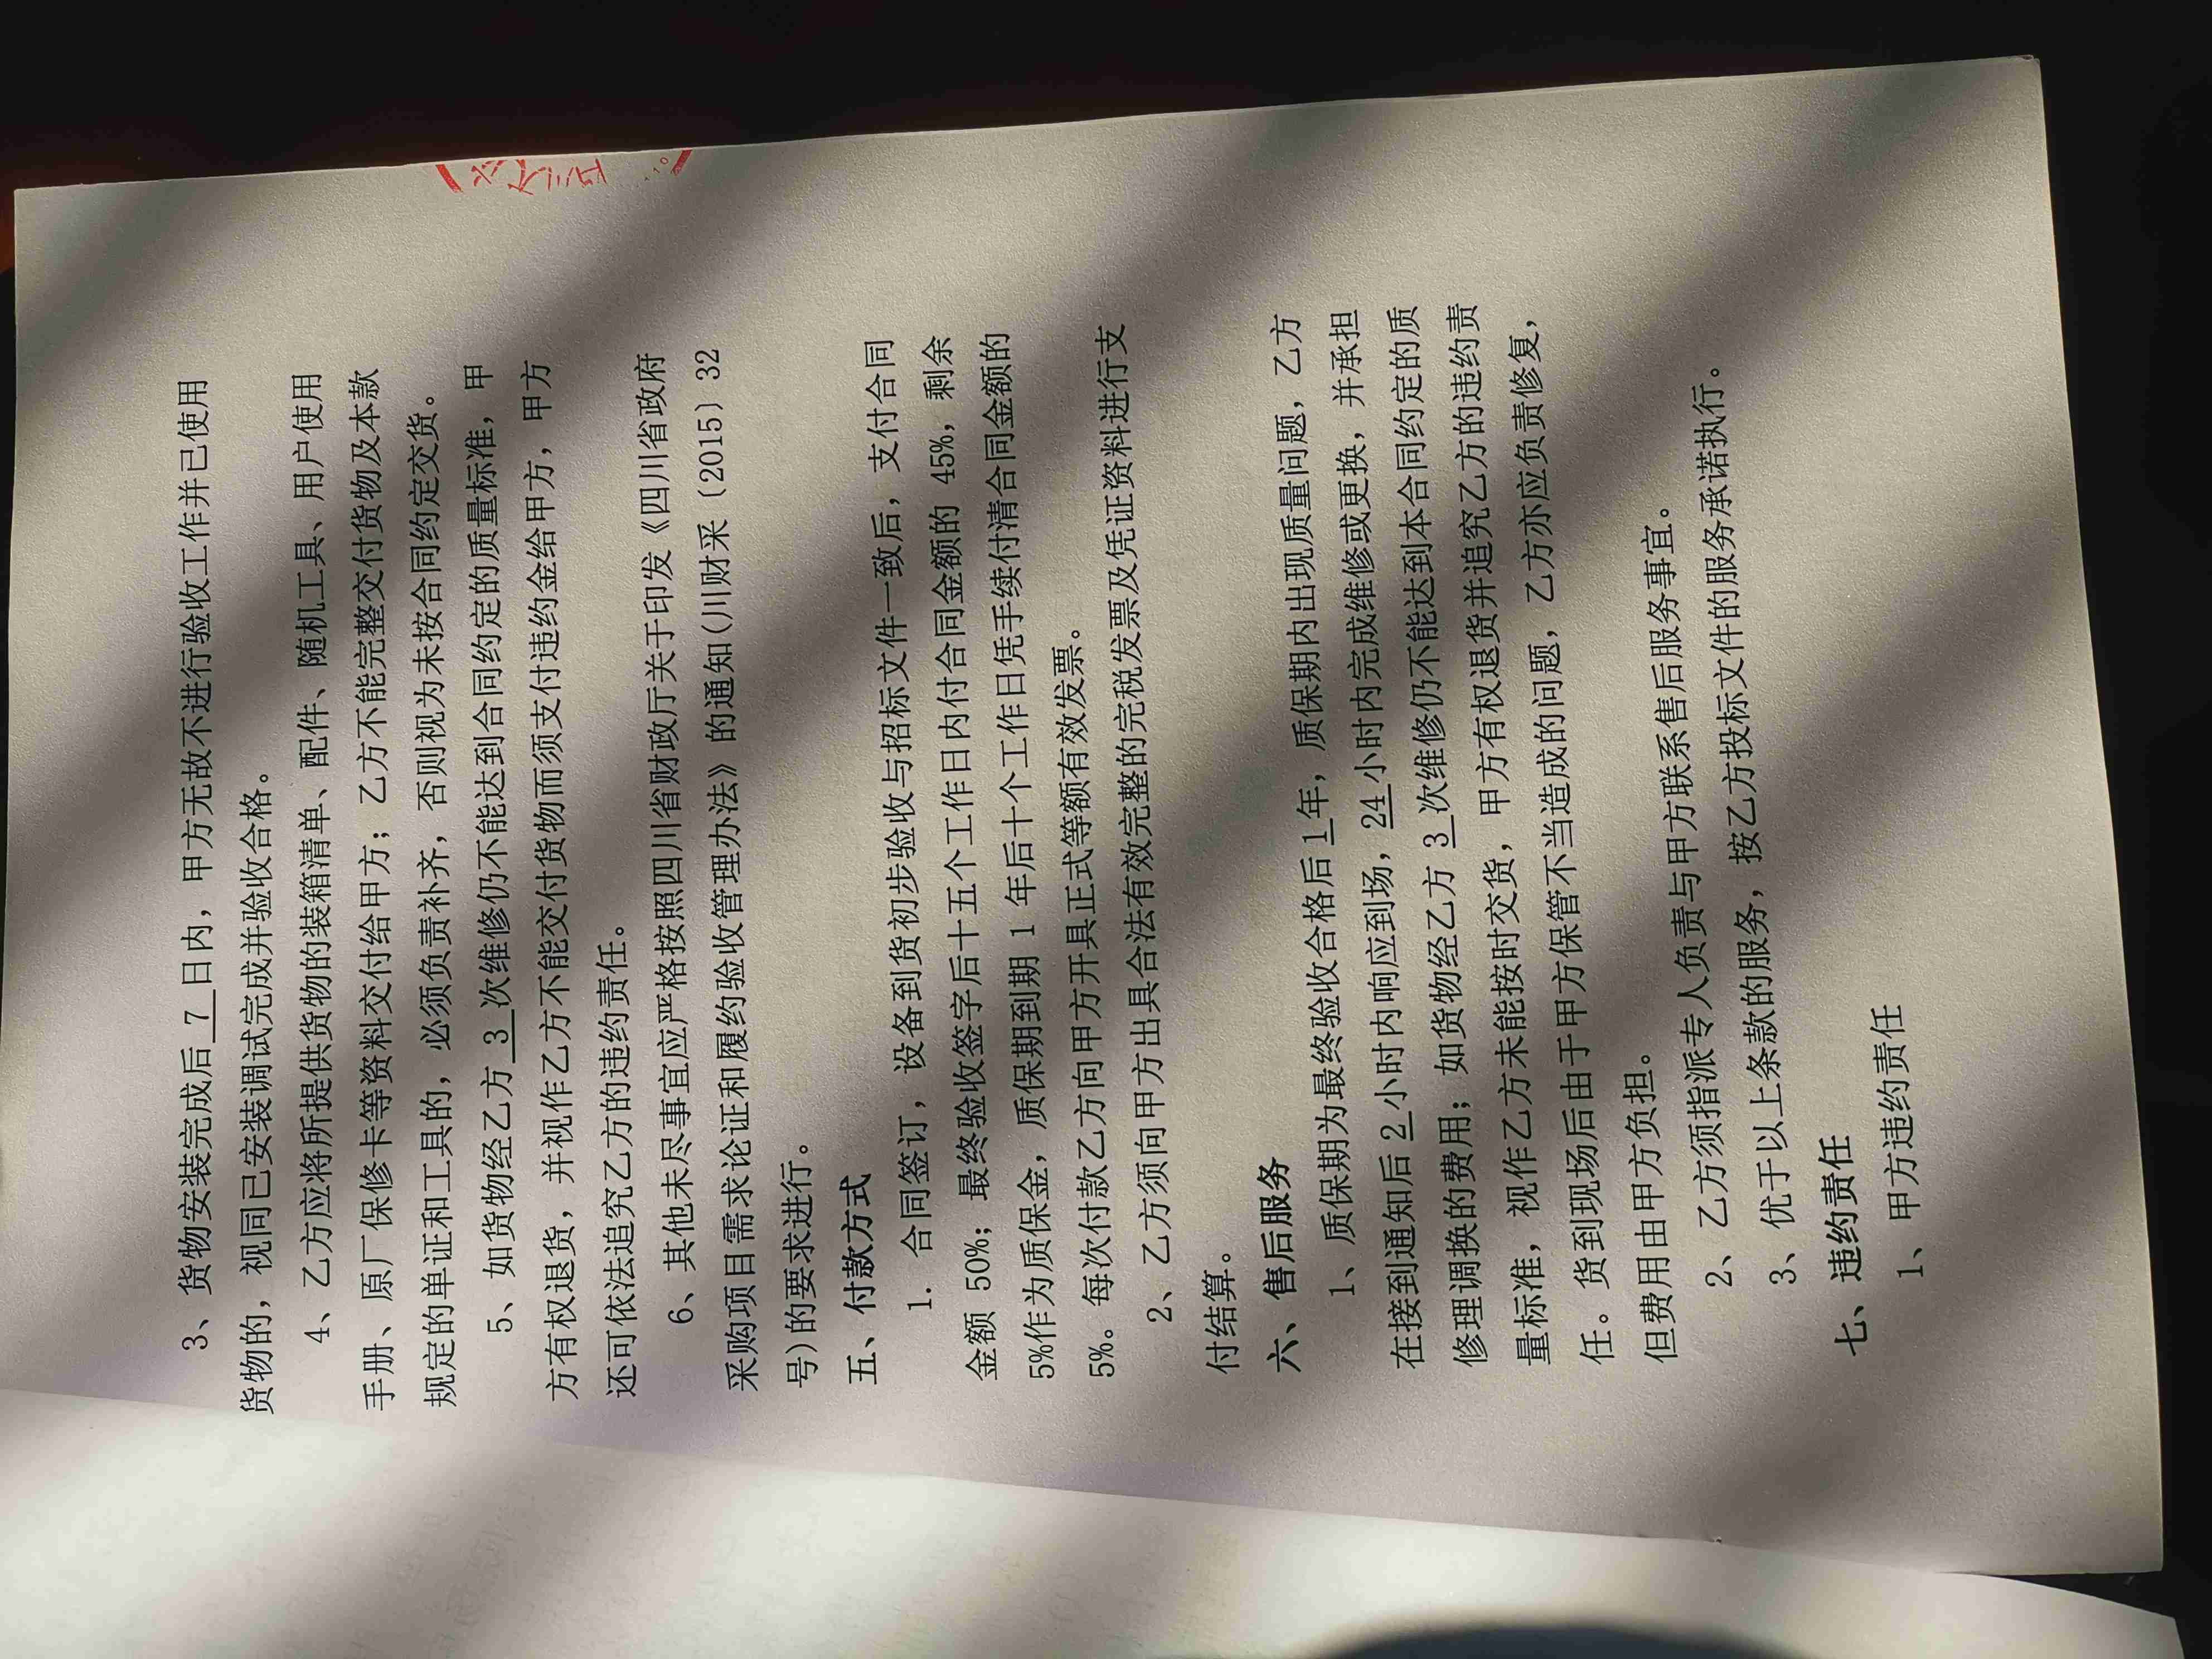 3、货物安装完成后 7 日内，甲方无故不进行验收工作并已使用
货物的，视同已安装调试完成并验收合格。
4、乙方应将所提供货物的装箱清单、配件、随机工具、用户使用
手册、原厂保修卡等资料交付给甲方；乙方不能完整交付货物及本款
规定的单证和工具的，必须负责补齐，否则视为未按合同约定交货。
5、如货物经乙方 3 次维修仍不能达到合同约定的质量标准，甲
方有权退货，并视作乙方不能交付货物而须支付违约金给甲方，甲方
还可依法追究乙方的违约责任。
6、其他未尽事宜应严格按照四川省财政厅关于印发《四川省政府
采购项目需求论证和履约验收管理办法》的通知(川财采〔2015〕32
号)的要求进行。
五、付款方式
1. 合同签订，设备到货初步验收与招标文件一致后，支付合同
金额 50%；最终验收签字后十五个工作日内付合同金额的 45%，剩余
5%作为质保金，质保期到期 1 年后十个工作日凭手续付清合同金额的
5%。每次付款乙方向甲方开具正式等额有效发票。
2、乙方须向甲方出具合法有效完整的完税发票及凭证资料进行支
付结算。
六、售后服务
1、质保期为最终验收合格后 1 年，质保期内出现质量问题，乙方
在接到通知后 2 小时内响应到场，24 小时内完成维修或更换，并承担
修理调换的费用；如货物经乙方 3 次维修仍不能达到本合同约定的质
量标准，视作乙方未能按时交货，甲方有权退货并追究乙方的违约责
任。货到现场后由于甲方保管不当造成的问题，乙方亦应负责修复，
但费用由甲方负担。
2、乙方须指派专人负责与甲方联系售后服务事宜。
3、优于以上条款的服务，按乙方投标文件的服务承诺执行。
七、违约责任
1、甲方违约责任